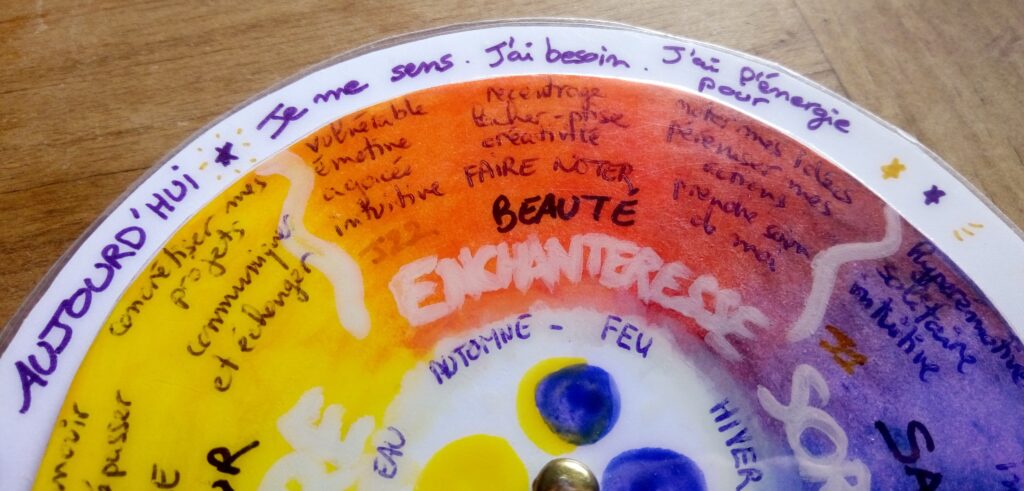 AUJOURD'HUI * Je me sens. J'ai besoin. J'ai d'énergie
pour
vulnérable
émotive
agacée
intuitive
J22
recentrage
lâcher-prise
créativité
FAIRE NOTER
BEAUTÉ
noter mes idées
pérenniser mes
actions
prendre soin
de moi
ENCHANTERESSE
AUTOMNE - FEU
concrétiser mes
projets
communiquer
et échanger
EAU
HIVER
Hyperémotive
solitaire
intuitive
SOR
SA